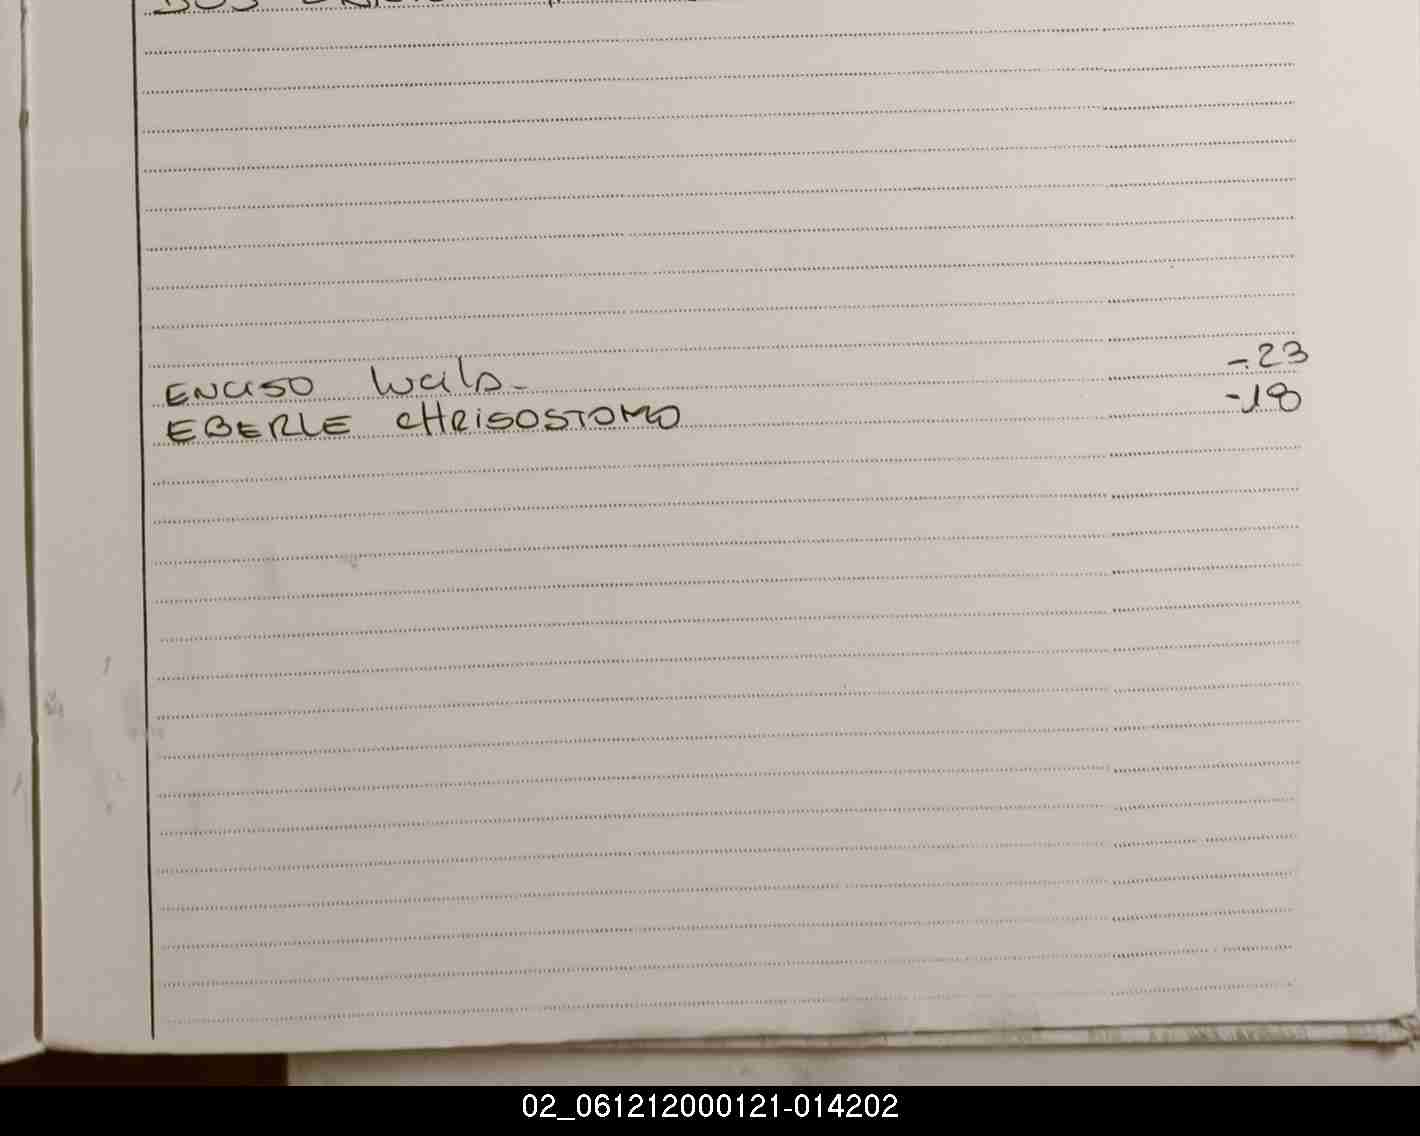 ENCISO -23
EBERLE CHRISOSTOMO -18
02_061212000121-014202